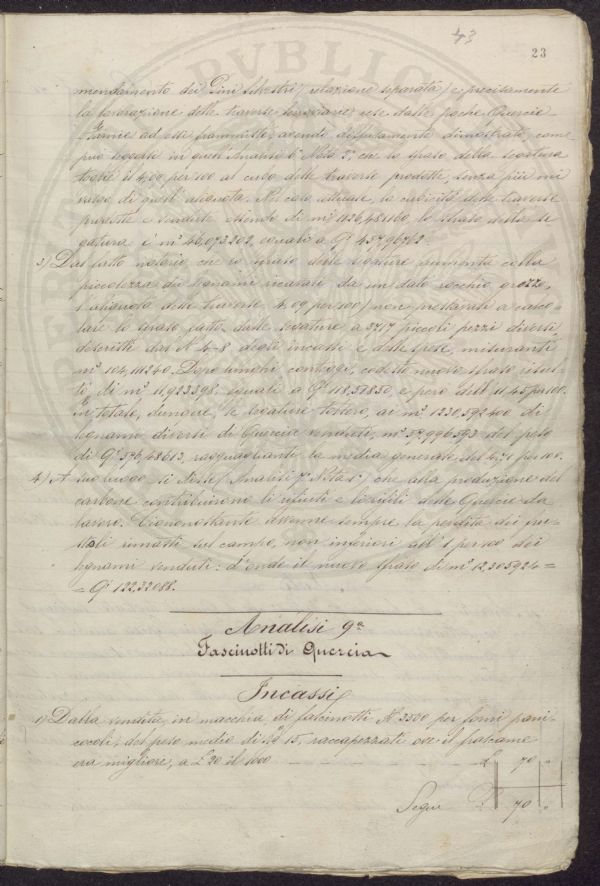 43
23
mendamento dei Pini silvestri (relazione separata) e precisamente
la lavorazione delle traverse ferroviarie rese dalle poche Quercie
frammiste, avendo dimostrato come
può vedersi in quell'Analisi 6ª Nota 2ª, che lo sfrido della segatura
toglie il 4,00 per 100 al cubo delle traverse prodotte, senza più mi
di quest'aliquota. Nel caso attuale, la cubicità delle traverse
prodotte e vendute essendo di mᶜ 1126,481160, lo sfrido della se
gatura è mᶜ 46,073202, eguali a Qˡⁱ 457,96762.
3) Dal fatto notorio che lo sfrido delle segature aumenta colla
piccolezza dei legnami ricavati da un dato rocchio grezzo,
l'aliquota delle traverse (4,09 per 100) non prestavasi a calco
lare lo sfrido fatto dalle segature a 3717 piccoli pezzi diversi,
descritti dai Nⁱ 4-8 degli incassi e delle spese, misuranti
mᶜ 104,111240. Dopo lunghi conteggi, codesto nuovo sfrido risul
tò di mᶜ 11,923398 eguali a Qˡⁱ 118,51850, e però dell' 11,45 per 100.
In totale, dunque, le segature tolsero, ai mᶜ 1230,592400 di
legnami diversi di Quercia venduti, mᶜ 57,996593 del peso
di Qˡⁱ 576,48613, ragguaglianti la media generale del 4,71 per 100.
4) A suo luogo si disse (Analisi 7ª Nota 1ª) che alla produzione del
carbone contribuirono li rifiuti e le delle Quercie da
lavoro. Ciononostante avvenne sempre la perdita dei
rimasti sul campo, non inferiori all' 1 per 100 dei
legnami venduti: d'onde il nuovo sfrido di mᶜ 12,305924 =
= Qˡⁱ 122,32088.
Analisi 9ª
Fascinotti di Quercia
Incassi
1) Dalla vendita, in macchia, di fascinotti Nº 3500 per forni pani
cocoli, del peso medio di 15, raccapezzati ove il frascame
era migliore, a £ 20 il 1000 £ 70 "
Segue £ 70 "